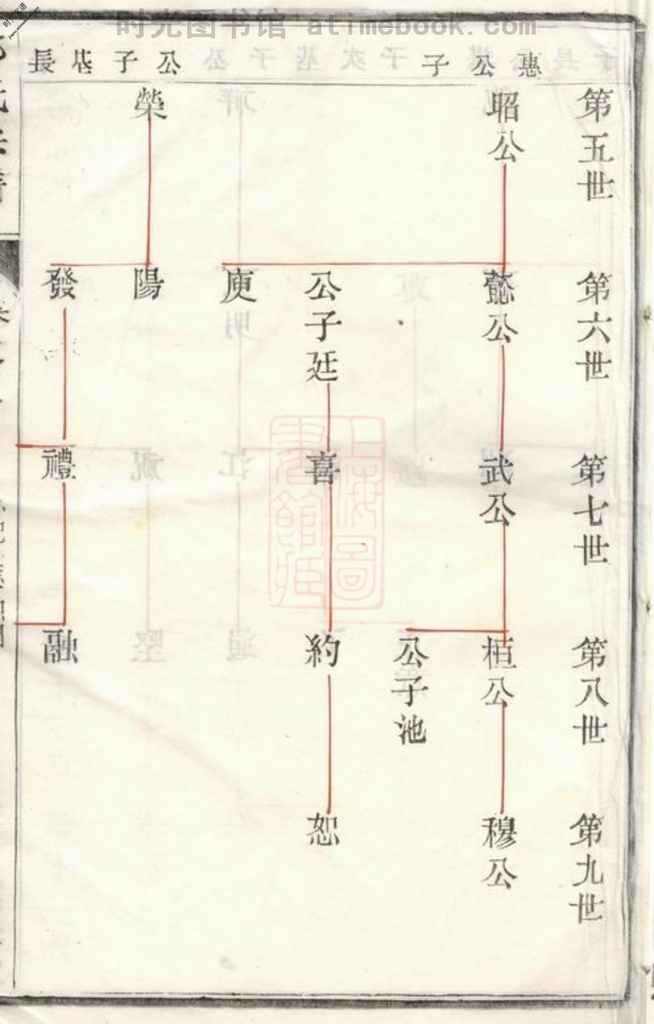 时光图书馆 atimebook.com
惠公子
公子基長
第五世
昭公
榮
第六世
懿公
公子廷
庚
陽
發
第七世
武公
喜
禮
第八世
桓公
公子池
約
融
第九世
穆公
恕